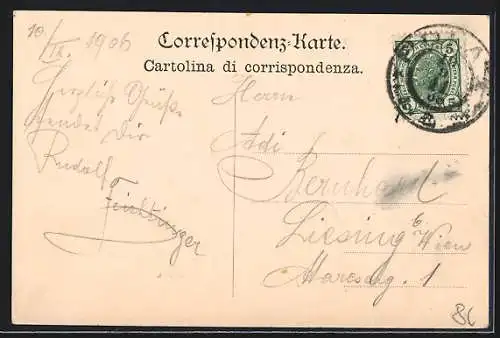 10/IX. 1906
Correspondenz-Karte.
Cartolina di corrispondenza.
Herzliche Grüße
sendet Dir
Rudolf
Feichtinger
Herrn
Adi
Bernhard
Liesing b. Wien
1
5
5
86